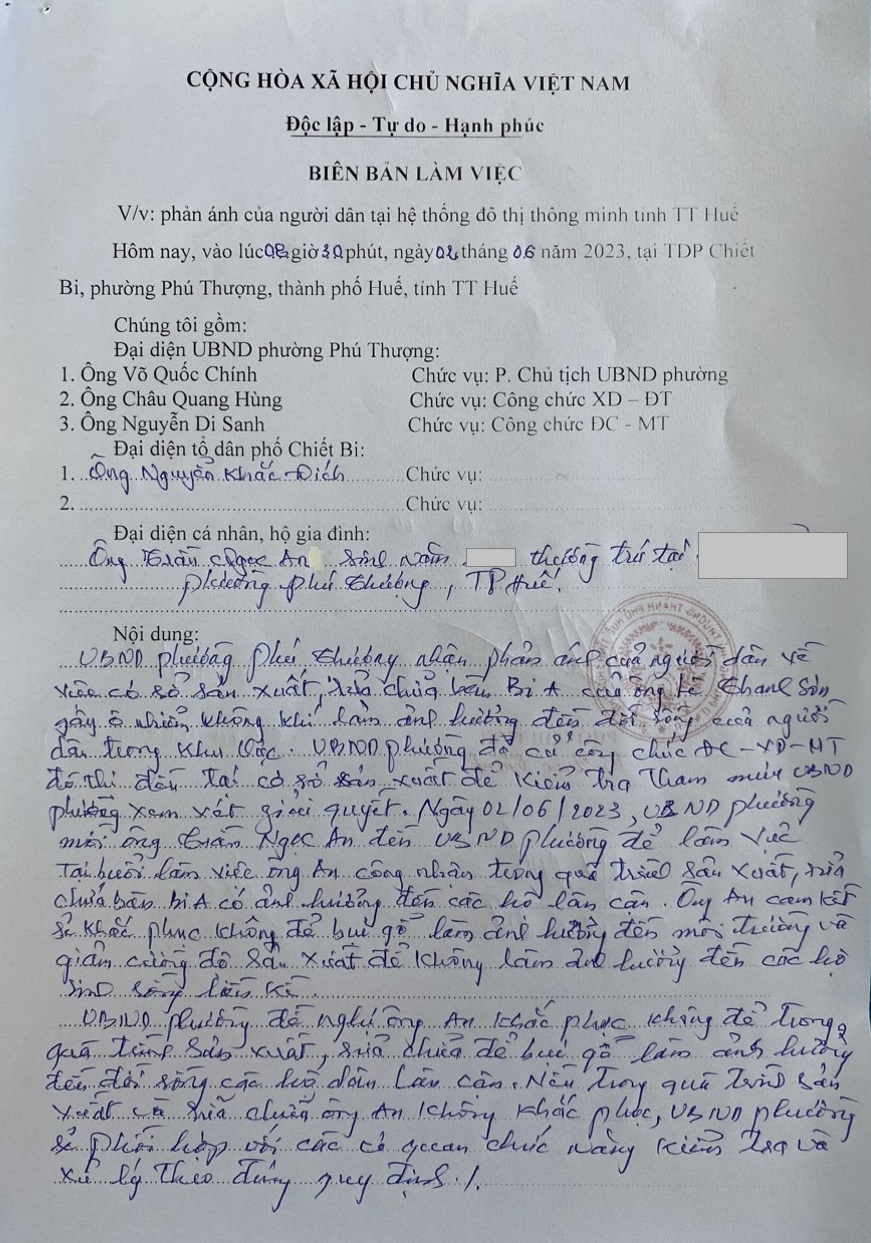 CỘNG HÒA XÃ HỘI CHỦ NGHĨA VIỆT NAM
Độc lập - Tự do - Hạnh phúc
BIÊN BẢN LÀM VIỆC
V/v: phản ánh của người dân tại hệ thống đô thị thông minh tỉnh TT Huế
Hôm nay, vào lúc 08 giờ 30 phút, ngày 02 tháng 06 năm 2023, tại TDP Chiết
Bi, phường Phú Thượng, thành phố Huế, tỉnh TT Huế
Chúng tôi gồm:
Đại diện UBND phường Phú Thượng:
1. Ông Võ Quốc Chính Chức vụ: P. Chủ tịch UBND phường
2. Ông Châu Quang Hùng Chức vụ: Công chức XD – ĐT
3. Ông Nguyễn Di Sanh Chức vụ: Công chức ĐC - MT
Đại diện tổ dân phố Chiết Bi:
1. Ông Nguyễn Khắc Đích Chức vụ:
2. Chức vụ:
Đại diện cá nhân, hộ gia đình:
Ông Trần Ngọc An sinh năm thường trú tại
phường Phú Thượng, TP Huế.
Nội dung:
UBND phường Phú Thượng nhận phản ánh của người dân về
việc cơ sở sản xuất, sửa chữa bàn Bi A của ông Lê Thanh Sơn
gây ô nhiễm không khí làm ảnh hưởng đến đời sống của người
dân trong khu vực. UBND phường đã cử công chức ĐC-XD-MT
đô thị đến tại cơ sở sản xuất để kiểm tra tham mưu UBND
phường xem xét giải quyết. Ngày 02/06/2023, UBND phường
mời ông Trần Ngọc An đến UBND phường để làm việc
Tại buổi làm việc ông An công nhận trong quá trình sản xuất, sửa
chữa bàn bi A có ảnh hưởng đến các hộ lân cận. Ông An cam kết
sẽ khắc phục không để bụi gỗ làm ảnh hưởng đến môi trường và
giảm cường độ sản xuất để không làm ảnh hưởng đến các hộ
sinh sống liền kề.
UBND phường đề nghị ông An khắc phục không để trong
quá trình sản xuất, sửa chữa để bụi gỗ làm ảnh hưởng
đến đời sống các hộ dân lân cận. Nếu trong quá trình sản
xuất và sửa chữa ông An không khắc phục, UBND phường
sẽ phối hợp với các cơ quan chức năng kiểm tra và
xử lý theo đúng quy định ./.